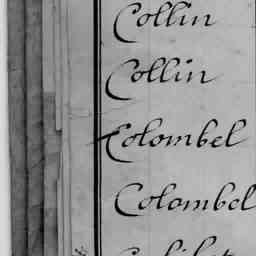 Collin
Collin
Colombel
Colombel